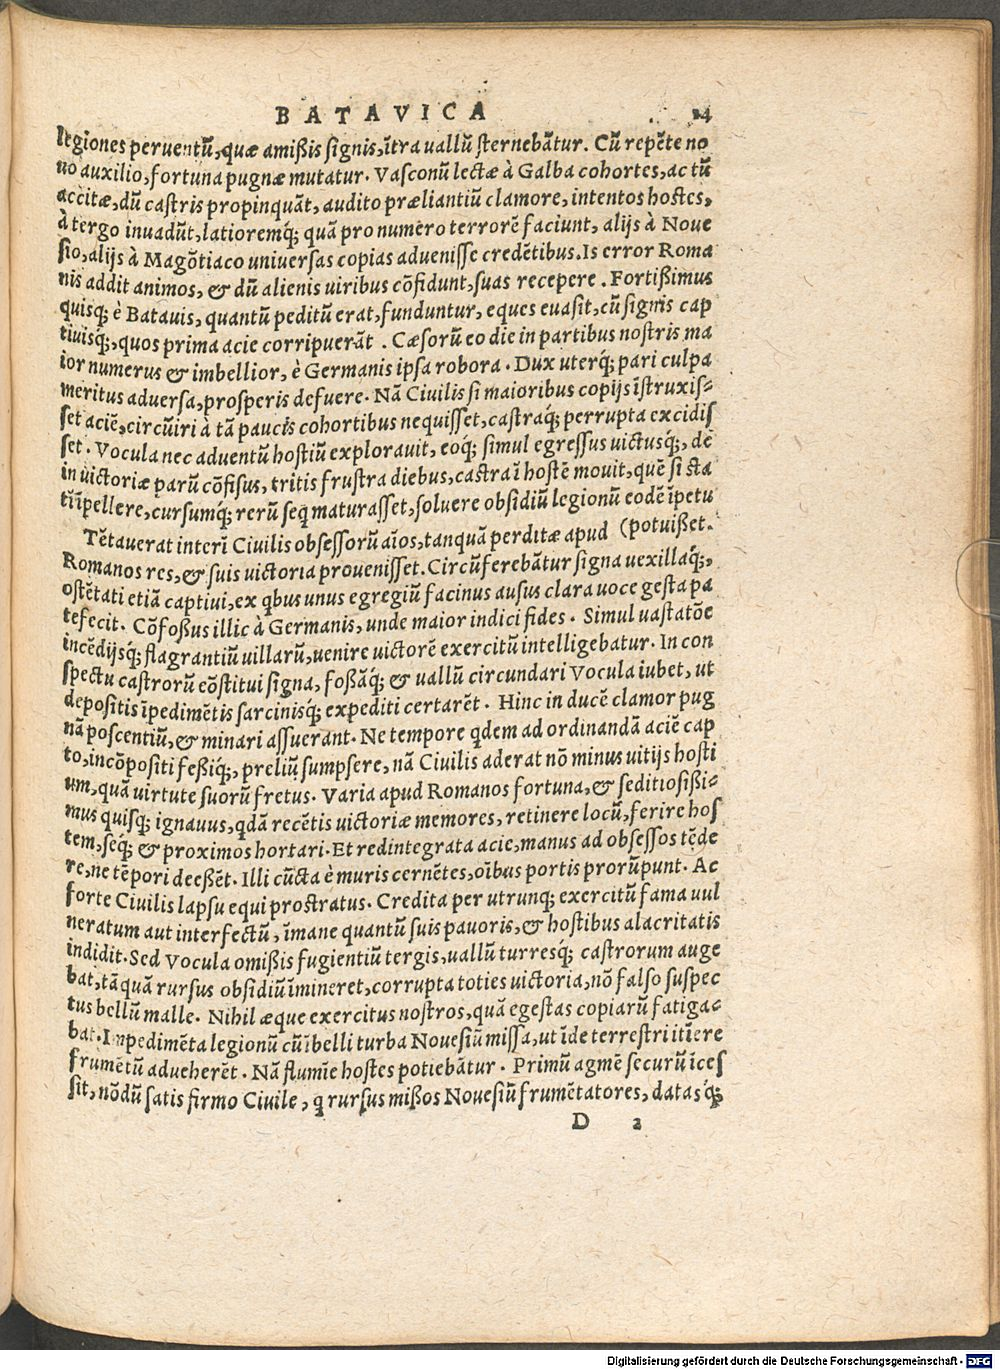 BATAVICA 24
legiones peruentū, quæ amißis signis, ītra uallū sternebātur. Cū repēte no
uo auxilio, fortuna pugnæ mutatur. Vasconū lectæ à Galba cohortes, ac tū
accitæ, dū castris propinquāt, audito præliantiū clamore, intentos hostes,
à tergo inuadūt, latioremq́; quā pro numero terrorē faciunt, alijs à Noue
sio, alijs à Magōtiaco uniuersas copias aduenisse credētibus. Is error Roma
nis addit animos, & dū alienis uiribus cōfidunt, suas recepere. Fortißimus
quisq; è Batauis, quantū peditū erat, funduntur, eques euasit, cū signis cap
tiuisq́;, quos prima acie corripuerāt. Cæsorū eo die in partibus nostris ma
ior numerus & imbellior, è Germanis ipsa robora. Dux uterq́; pari culpa
meritus aduersa, prosperis defuere. Nā Ciuilis si maioribus copijs īstruxis-
set aciē, circūiri à tā paucis cohortibus nequisset, castraq́; perrupta excidis
set. Vocula nec aduentū hostiū explorauit, eoq́; simul egressus uictusq́;, de
in uictoriæ parū cōfisus, tritis frustra diebus, castra ī hostē mouit, quē si sta
tī īpellere, cursumq́; rerū seq maturasset, soluere obsidiū legionū eodē īpetu
Tētauerat interī Ciuilis obsessorū aīos, tanquā perditæ apud (potuißet.
Romanos res, & suis uictoria prouenisset. Circūferebātur signa uexillaq́;,
ostētati etiā captiui, ex qbus unus egregiū facinus ausus clara uoce gesta pa
tefecit. Cōfoßus illic à Germanis, unde maior indici fides. Simul uastatōe
incēdijsq́; flagrantiū uillarū, uenire uictorē exercitū intelligebatur. In con
spectu castrorū cōstitui signa, foßāq́; & uallū circundari Vocula iubet, ut
depositis īpedimētis sarcinisq́; expediti certarēt. Hinc in ducē clamor pug
nā poscentiū, & minari assuerant. Ne tempore qdem ad ordinandā aciē cap
to, incōpositi feßiq́;, preliū sumpsere, nā Ciuilis aderat nō minus uitijs hosti
um, quā uirtute suorū fretus. Varia apud Romanos fortuna, & seditiosißi-
mus quisq; ignauus, qdā recētis uictoriæ memores, retinere locū, ferire hos
tem, seq́; & proximos hortari. Et redintegrata acie, manus ad obsessos tēde
re, ne tēpori deeßēt. Illi cūcta è muris cernētes, oībus portis prorūpunt. Ac
forte Ciuilis lapsu equi prostratus. Credita per utrunq; exercitū fama uul
neratum aut interfectū, īmane quantū suis pauoris, & hostibus alacritatis
indidit. Sed Vocula omißis fugientiū tergis, uallū turresq́; castrorum auge
bat, tāquā rursus obsidiū īmineret, corrupta toties uictoria, nō falso suspec
tus bellū malle. Nihil æque exercitus nostros, quā egestas copiarū fatiga-
bat. Impedimēta legionū cū ībelli turba Nouesiū missa, ut īde terrestri itīere
frumētū adueherēt. Nā flumīe hostes potiebātur. Primū agmē securū īces
sit, nōdū satis firmo Ciuile, q rursus mißos Nouesiū frumētatores, datasq́;
D 2
Digitalisierung gefördert durch die Deutsche Forschungsgemeinschaft - DFG